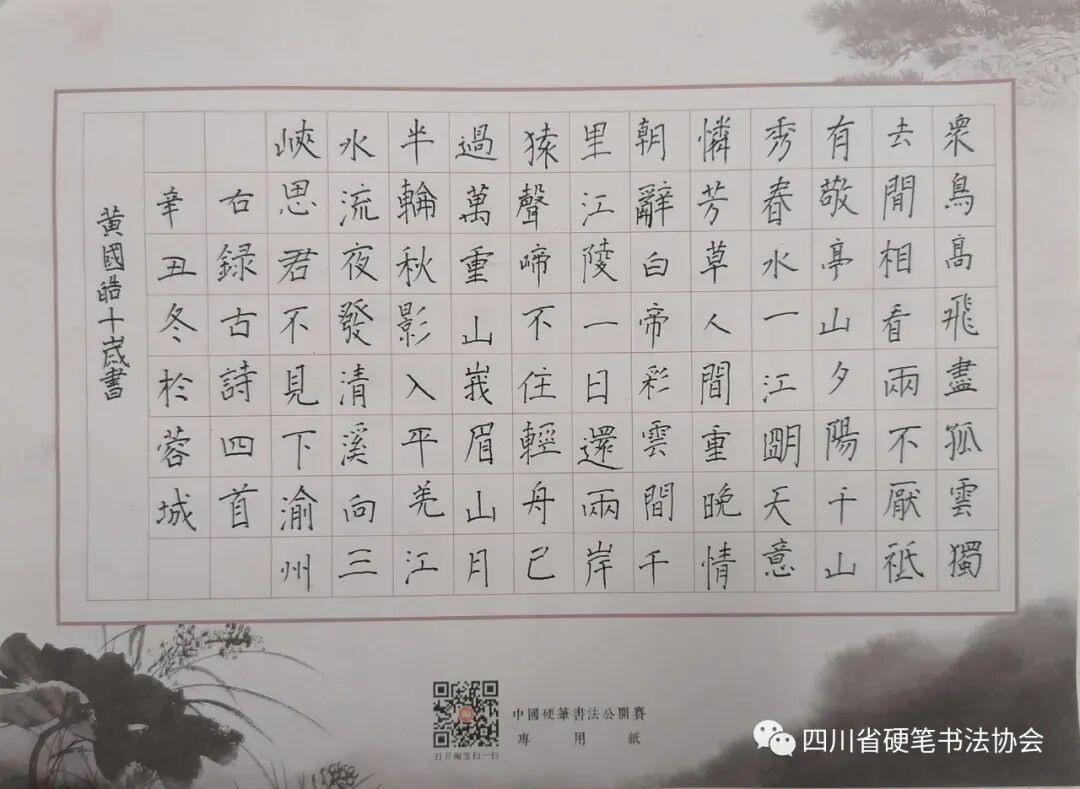 衆鳥高飛盡孤雲獨
去閒相看兩不厭祗
有敬亭山夕陽千山
秀春水一江明天意
憐芳草人間重晚情
朝辭白帝彩雲間千
里江陵一日還兩岸
猿聲啼不住輕舟已
過萬重山峩眉山月
半輪秋影入平羌江
水流夜發清溪向三
峽思君不見下渝州
右録古詩四首
辛丑冬於蓉城
黄國皓十歲書
中國硬筆書法公開賽
專用紙
打开淘宝扫一扫
四川省硬笔书法协会